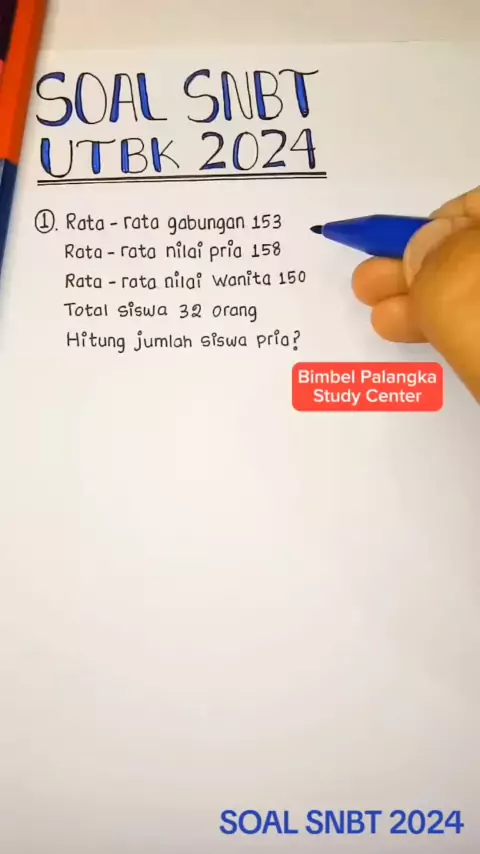 SOAL SNBT
UTBK 2024
①. Rata-rata gabungan 153
Rata-rata nilai pria 158
Rata-rata nilai wanita 150
Total siswa 32 orang
Hitung jumlah siswa pria?
Bimbel Palangka
Study Center
SOAL SNBT 2024